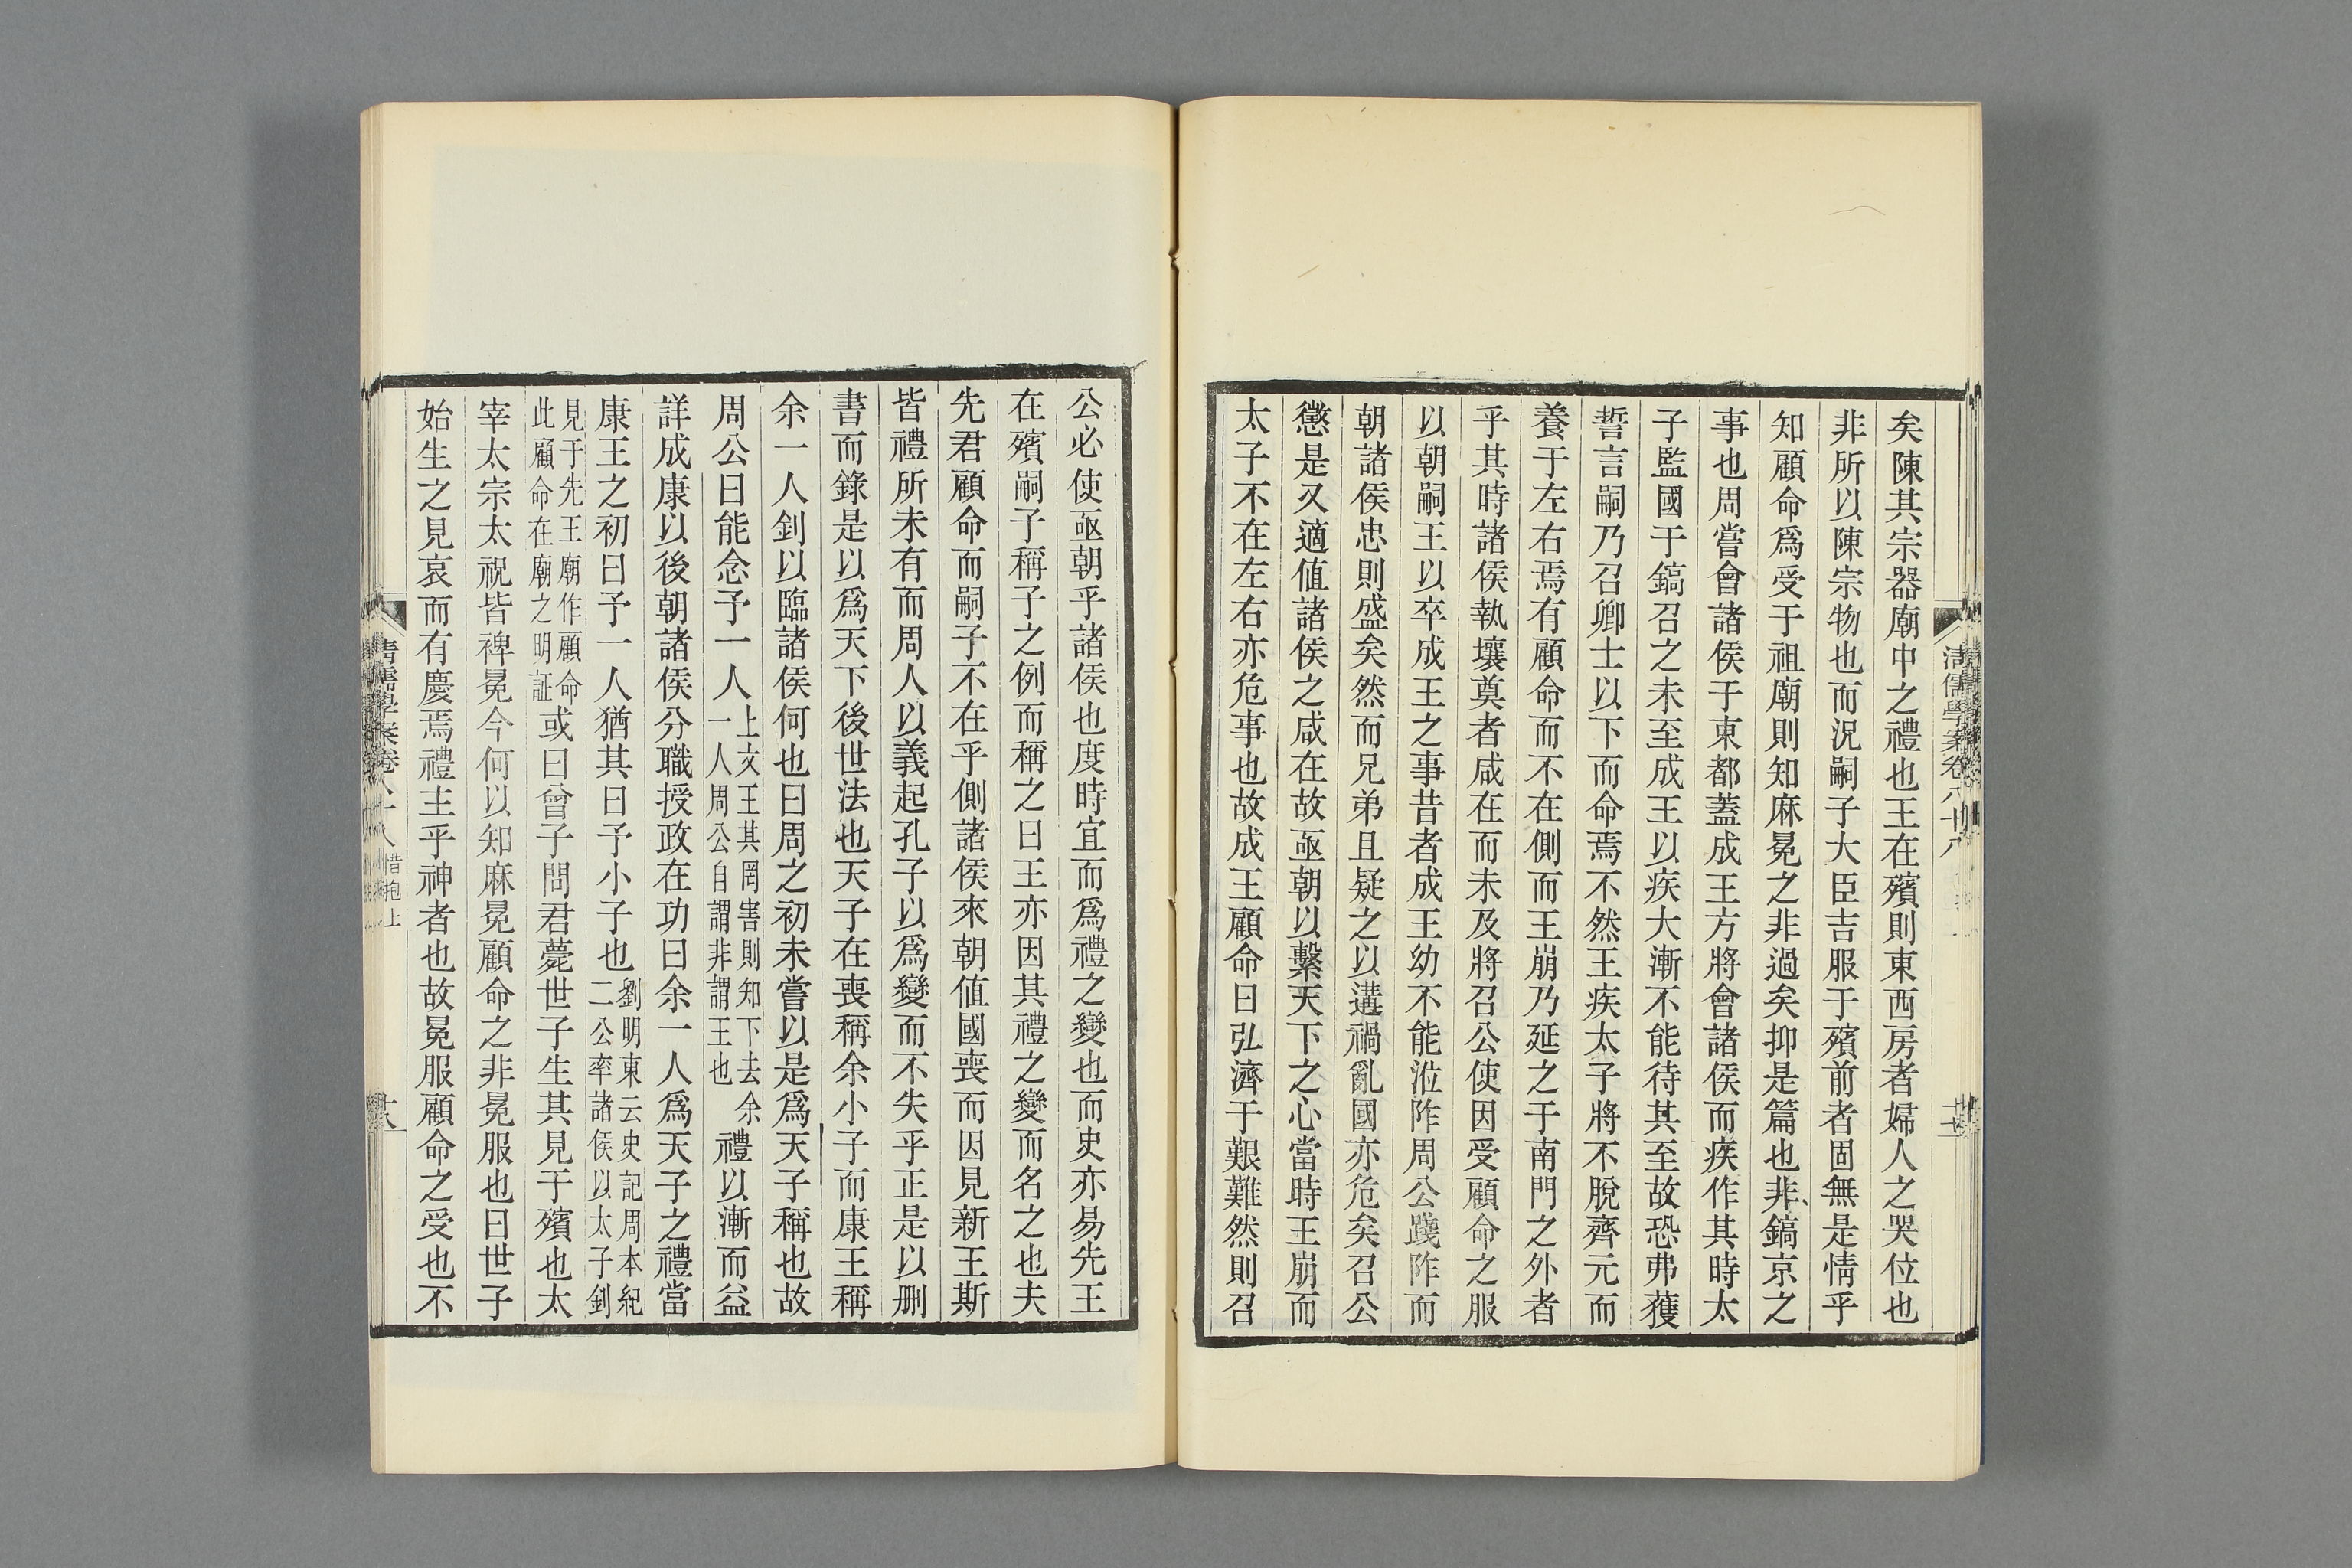 矣陳其宗器廟中之禮也王在殯則東西房者婦人之哭位也
非所以陳宗物也而況嗣子大臣吉服于殯前者固無是情乎
知顧命爲受于祖廟則知麻冕之非過矣抑是篇也非鎬京之
事也周嘗會諸侯于東都蓋成王方將會諸侯而疾作其時太
子監國于鎬召之未至成王以疾大漸不能待其至故恐弗蒦
誓言嗣乃召卿士以下而命焉不然王疾太子將不脫齊元而
養于左右焉有顧命而不在側而王崩乃延之于南門之外者
乎其時諸侯執壤奠者咸在而未及將召公使因受顧命之服
以朝嗣王以卒成王之事昔者成王幼不能涖阼周公踐阼而
朝諸侯忠則盛矣然而兄弟且疑之以遘禍亂國亦危矣召公
懲是又適値諸侯之咸在故亟朝以繫天下之心當時王崩而
太子不在左右亦危事也故成王顧命曰弘濟于艱難然則召
公必使亟朝乎諸侯也度時宜而爲禮之變也而史亦易先王
在殯嗣子稱子之例而稱之曰王亦因其禮之變而名之也夫
先君顧命而嗣子不在乎側諸侯來朝値國喪而因見新王斯
皆禮所未有而周人以義起孔子以爲變而不失乎正是以刪
書而錄是以爲天下後世法也天子在喪稱余小子而康王稱
余一人釗以臨諸侯何也曰周之初未嘗以是爲天子稱也故
周公曰能念予一人上文王其罔害則知下去余一人周公自謂非謂王也禮以漸而益
詳成康以後朝諸侯分職授政在功曰余一人爲天子之禮當
康王之初曰予一人猶其曰予小子也劉明東云史記周本紀二公率諸侯以太子釗
見于先王廟作顧命此顧命在廟之明証或曰曾子問君薨世子生其見于殯也太
宰太宗太祝皆裨冕今何以知麻冕顧命之非冕服也曰世子
始生之見哀而有慶焉禮主乎神者也故冕服顧命之受也不
清儒學案卷八十八
惜抱上